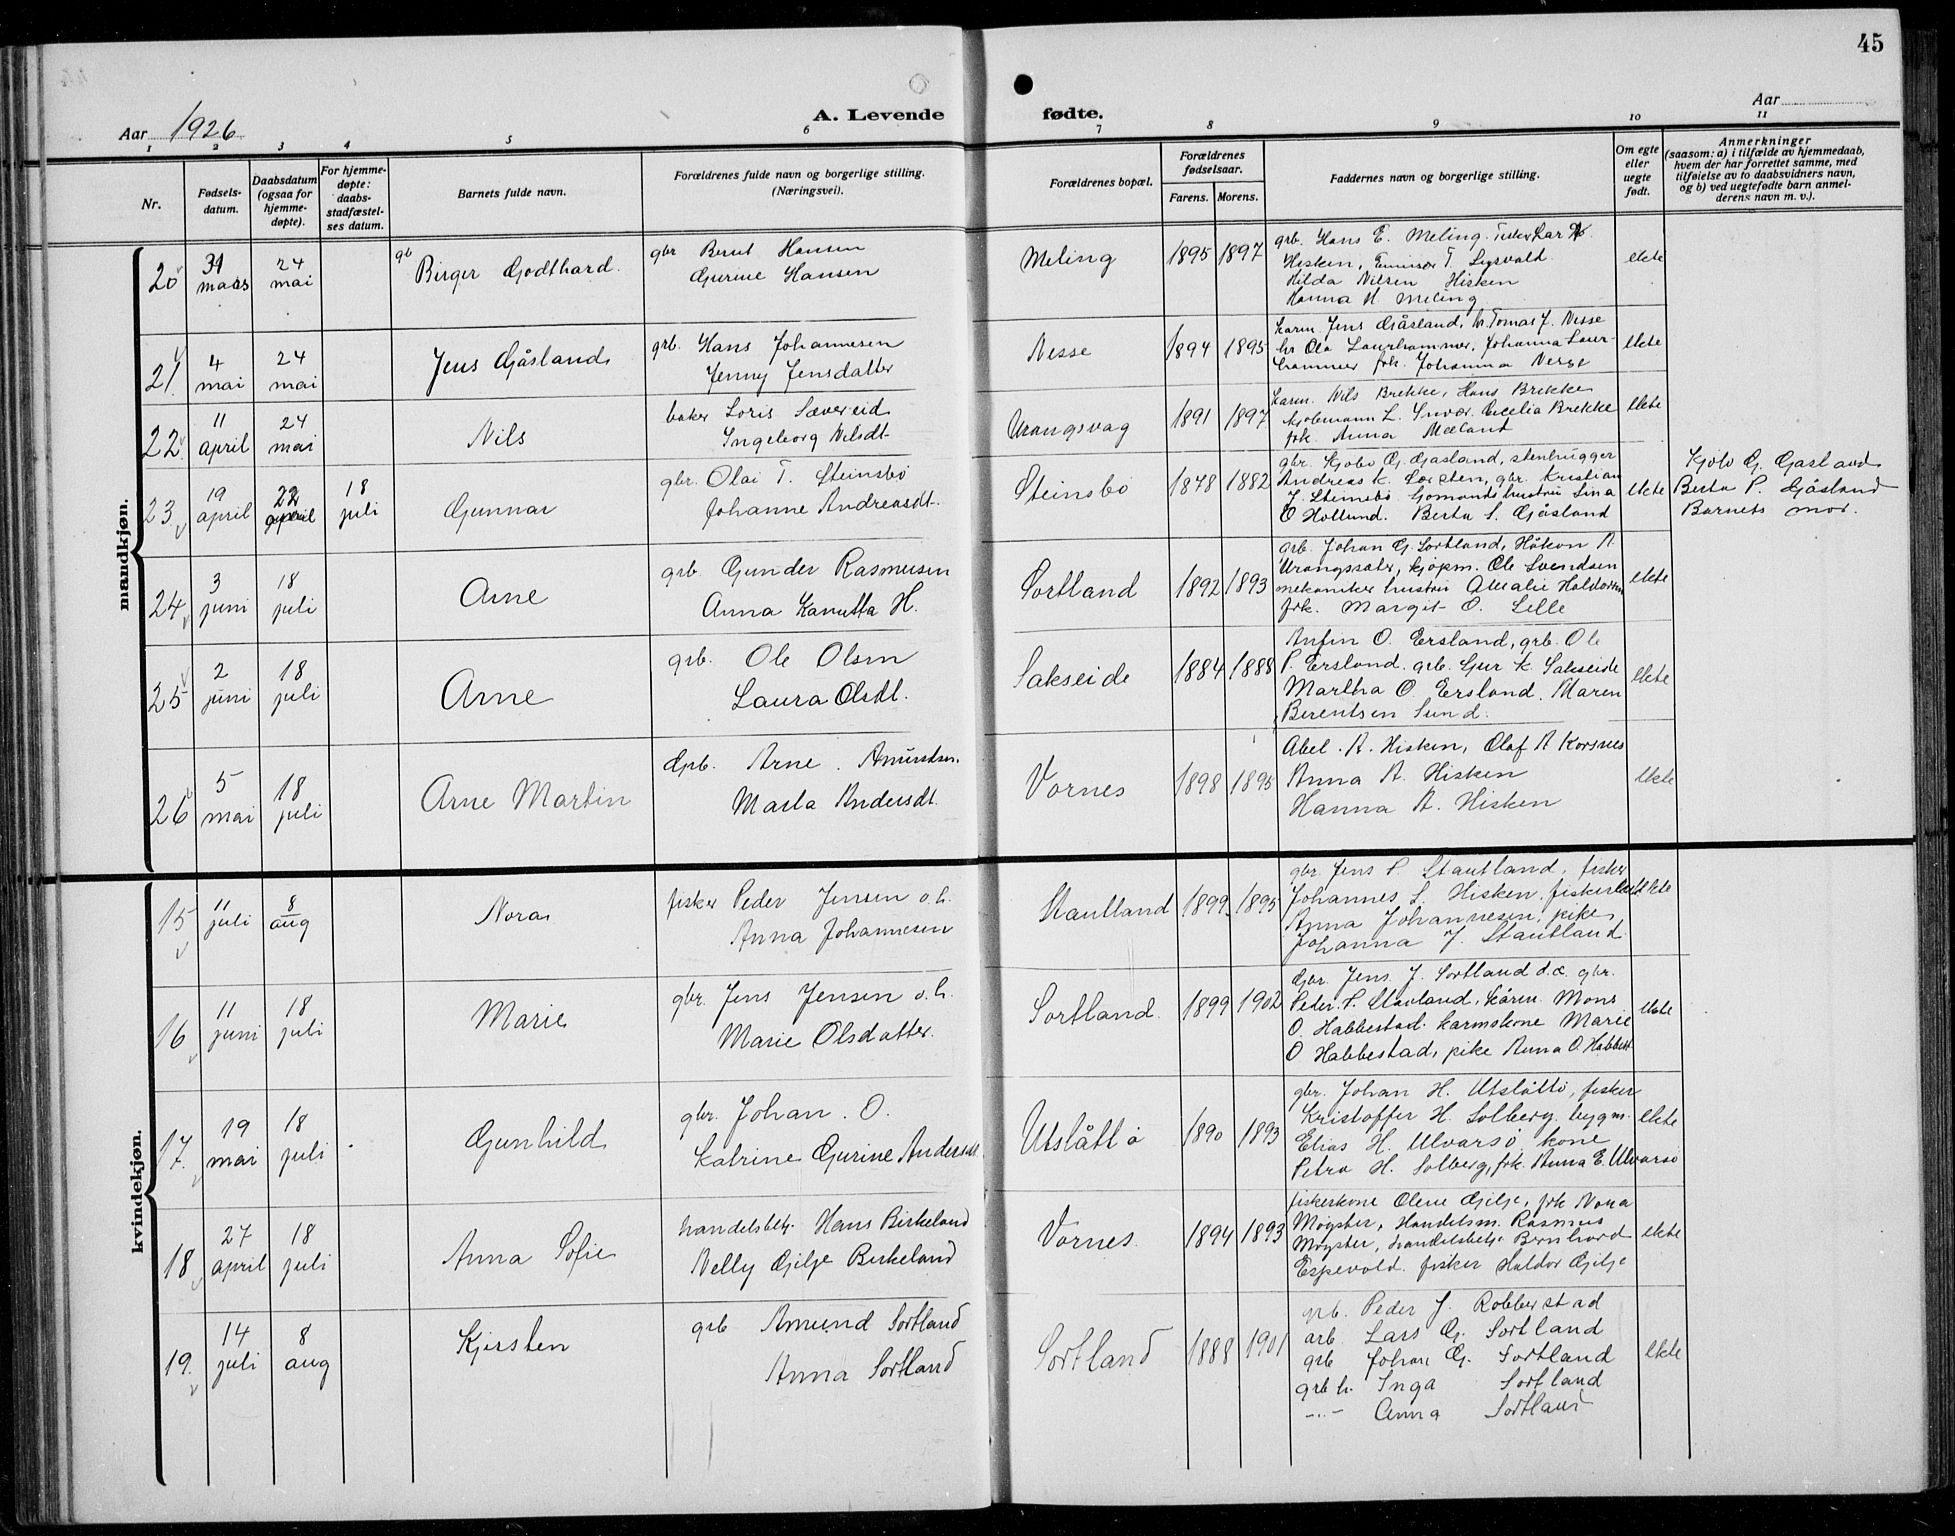 45
Aar 1926
A. Levende fødte.
Aar
1 2 3 4 5 6 7 8 9 10 11
Nr.
Fødsels-
datum.
Daabsdatum
(ogsaa for
hjemme-
døpte).
For hjemme-
døpte:
daabs-
stadfæstel-
ses datum.
Barnets fulde navn.
Forældrenes fulde navn og borgerlige stilling.
(Næringsvei).
Forældrenes bopæl.
Forældrenes
fødselsaar.
Farens. Morens.
Faddernes navn og borgerlige stilling.
Om egte
eller
uegte
født.
Anmerkninger
(saasom: a) i tilfælde av hjemmedaab,
hvem der har forrettet samme, med
tilføielse av to daabsvidners navn,
og b) ved uegtefødte barn anmel-
derens navn m. v.).
mandkjøn.
20 31 mars 24 mai
Birger Godthard.
gbr Berut Hansen
Gurine Hansen
Meling 1895 1897
grb. Hans E. Meling.
Hisken, T. Lysvold
Hilda Nilsen Hisken
Hanna H. Meling
ekte
21. 4 mai 24 mai
Jens Gåsland
grb. Hans Johannesen
Jenny Jensdatter
Nesse 1894 1895
karm. Jens Gåsland, Tomas J. Nesse
Ola Laurhammer, Johanna Laur-
hammer frk. Johanna
ekte
22. 11 april 24 mai
Nils
baker Loris Sævereid
Ingeborg Nilsdt.
Urangsvag 1891 1897
karm. Nils Brekke, Hans Brekke
L. Cecelia Brekke
frk. Anna Mæland
ekte
23 19 april 22 april 18 juli
Gunnar
gbr. Olai T. Steinsbø
Johanne Andreasdt.
Steinsbø 1878 1882
gbr. Kjøbo G. Gasland, stenhugger
Andreas K. gbr. Kristian
J. Steinsbø hustru Lina
O Hollund. Berta S. Gåsland
ekte
G. Gasland
Berta P. Gåsland
Barnets mor.
24 3 juni 18 juli
Arne
grb. Gunder Rasmusen
Anna Kanutta H.
Sortland 1892 1893
grb. Johan G. Sortland, Håkon A.
Urangsæter, kjøpm. Ole Svendsen
mekaniker hustru Amalie Haldorsen
frk. Margit O. Lille
ekte
25 2 juni 18 juli
Arne
grb. Ole Olsen
Laura Olsdt.
Sakseide 1884 1888
Anfin O. Ersland, grb. Ole
P. Ersland. grb. Gur K. Sakseide
Martha O. Ersland. Maren
Berentsen Sund.
ekte
26 5 mai 18 juli
Arne Martin
Grb. Arne Amundsen.
Marta Andersdt.
Vornes 1898 1895
Abel. A. Hisken, Olaf A Korsnes
Anna A. Hisken
Hanna A. Hisken
ekte
kvindekjøn.
15 11 juli 8 aug
Nora
fisker Peder Jensen o.h.
Anna Johannesen
Stautland 1899 1895
gbr. Jens P. Stautland, fisker
Johannes L. Hisken,
Anna Johannesen, pike
Johanna J. Stautland
ekte
16 11 juni 18 juli
Marie
gbr. Jens Jensen o.h.
Marie Olsdatter.
Sortland. 1899 1902
Gbr. Jens J. Sortland d.æ. gbr.
Peder. P. Stavland, Mons
O. Habbestad. karmskone Marie
O Habbestad, pike Anna O. Habbest.
ekte
17. 19 mai 18 juli
Gunhild
gbr. Johan. O.
Katrine Gurine Andersdt.
Utslåttø 1890 1893
gbr. Johan H. Utslåttø, fisker
Kristoffer H. Solberg. bygm.
Elias H. Ulvarsø, kone
Petra H. Solberg, frk. Anna E. Ulvarsø
ekte
18 27 april 18 juli
Anna Sofie
handelsbetj. Hans Birkeland
Nelly Gilje Birkeland
Vornes. 1894 1893
fiskerkone Olene Gilje, frk Nora
Møgster, Handelsm. Rasmus
Møgster, handelsbetj. Bernhard
Espevold. fisker Haldor Gilje
ekte
19. 14 juli 8 aug
Kjersten
grb Amund Sortland
Anna Sortland
Sortland 1888 1901
grb. Peder J. Robberstad
arb. Lars G. Sortland
grb Johan G. Sortland
grb h. Inga Sortland
-..- Anna Sortland
ekte